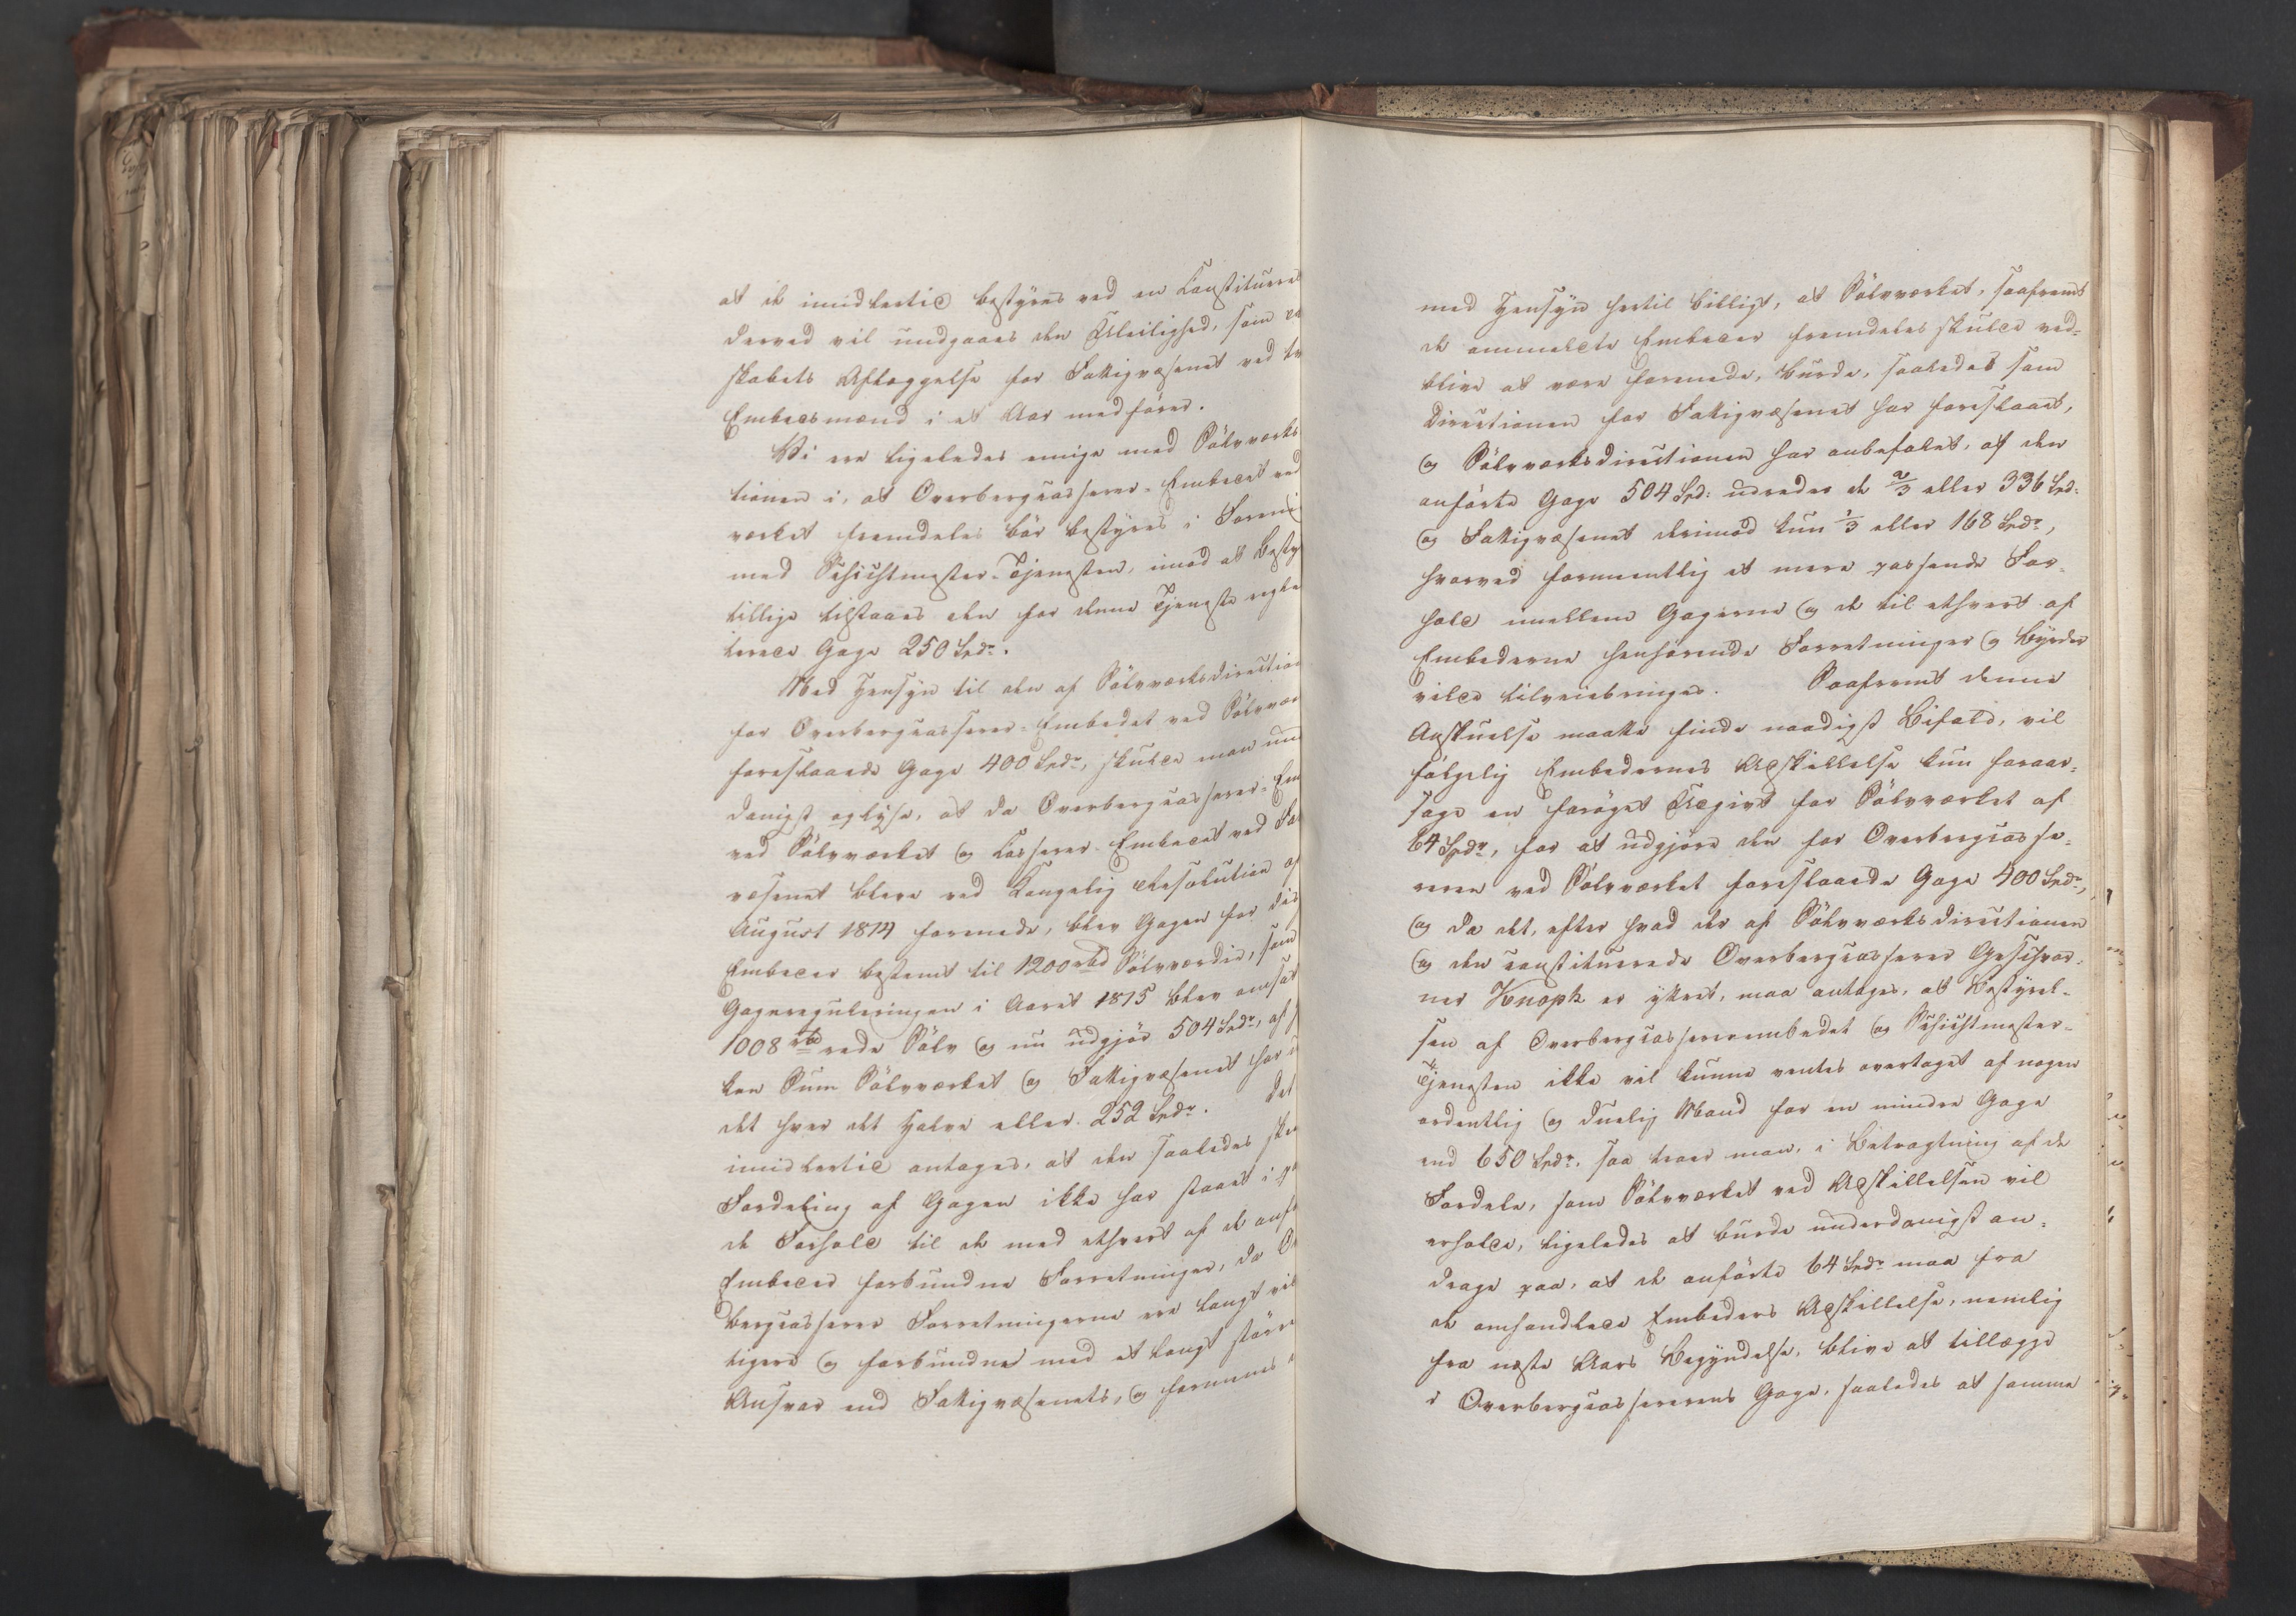 at de imidlertid bestyres ved en Constitueret
derved vil undgaaes den Uleilighed, som
skabets Aflæggelse for Fattigvæsenet ved
Embedsmænd i et Aar medfører.
Vi ere ligeledes enige med Sølvværks
tionen i, at Overbergcasserer-Embedet ved
værket fremdeles bør bestyres i Foreni
med Schichtmester-Tjenesten, imod at Besty
tillige tilstaaes den for denne Tjeneste regle
terede Gage 250 Spdr.
Med Hensyn til den af Sølvværksdirection
for Overbergcasserer-Embedet ved Sølvvær
foreslaaede Gage 400 Spdr, skulde man un
danigst oplyse, at da Overbergcasserer-Em
ved Sølvværket og Casserer-Embedet ved Fa
væsenet bleve ved Kongelig Resolution af
August 1814 forenede, blev Gagen for dis
Embeder bestemt til 1200 rbd Sølvværdie, som
Gagereguleringen i Aaret 1815 blev omsat
1008 rbd rede Sølv og nu udgjør 504 Spdr, af h
ken Sum Sølvværket og Fattigvæsenet har u
det hver det Halve eller 252 Spdr. Det
imidlertid antages, at den saaledes skee
Fordeling af Gagen ikke har staaet i
de Forhold til de med ethvert af de anf
Embeder forbundne Forretninger, da O
bergcasserer Forretningerne ere langt vid
tigere og forbundne med et langt større
Ansvar end Fattigvæsenets, og formenes
med Hensyn hertil billigt, at Sølvværket, saafremt
de ommeldte Embeder fremdeles skulde ved-
blive at være forenede, burde, saaledes som
Directionen for Fattigvæsenet har foreslaaet,
og Sølvværksdirectionen har anbefalet, af den
anførte Gage 504 Spd: udrede de 2/3 eller 336 Spd:
og Fattigvæsenet derimod kun 1/3 eller 168 Spdr,
hvorved formeentlig et mere passende For-
hold imellem Gagerne og de til ethvert af
Embederne henhørende Forretninger og Byrder
vilde tilveiebringes. Saafremt denne
Anskuelse maatte finde naadigst Bifald, vil
følgelig Embedernes Adskillelse kun foraar-
sage en forøget Udgivt for Sølvværket af
64 Spdr, for at udgjøre den for Overbergcasse-
reren ved Sølvværket foreslaaede Gage 400 Spdr,
og da det, efter hvad der af Sølvværksdirectionen
og den constituerede Overbergcasserer Geschvor-
ner Knoph er yttret, maa antages, at Bestyrel-
sen af Overbergcassererembedet og Schichtmester-
Tjenesten ikke vil kunne ventes overtaget af nogen
ordentlig og duelig Mand for en mindre Gage
end 650 Spdr, saa troer man, i Betragtning af de
Fordele, som Sølvværket ved Adskillelsen vil
erholde, ligeledes at burde underdanigst an-
drage paa, at de anførte 64 Spdr maa fra
de omhandlede Embeders Adskillelse, nemlig
fra næste Aars Begyndelse, blive at tillægge
Overbergcassererens Gage, saaledes at samme